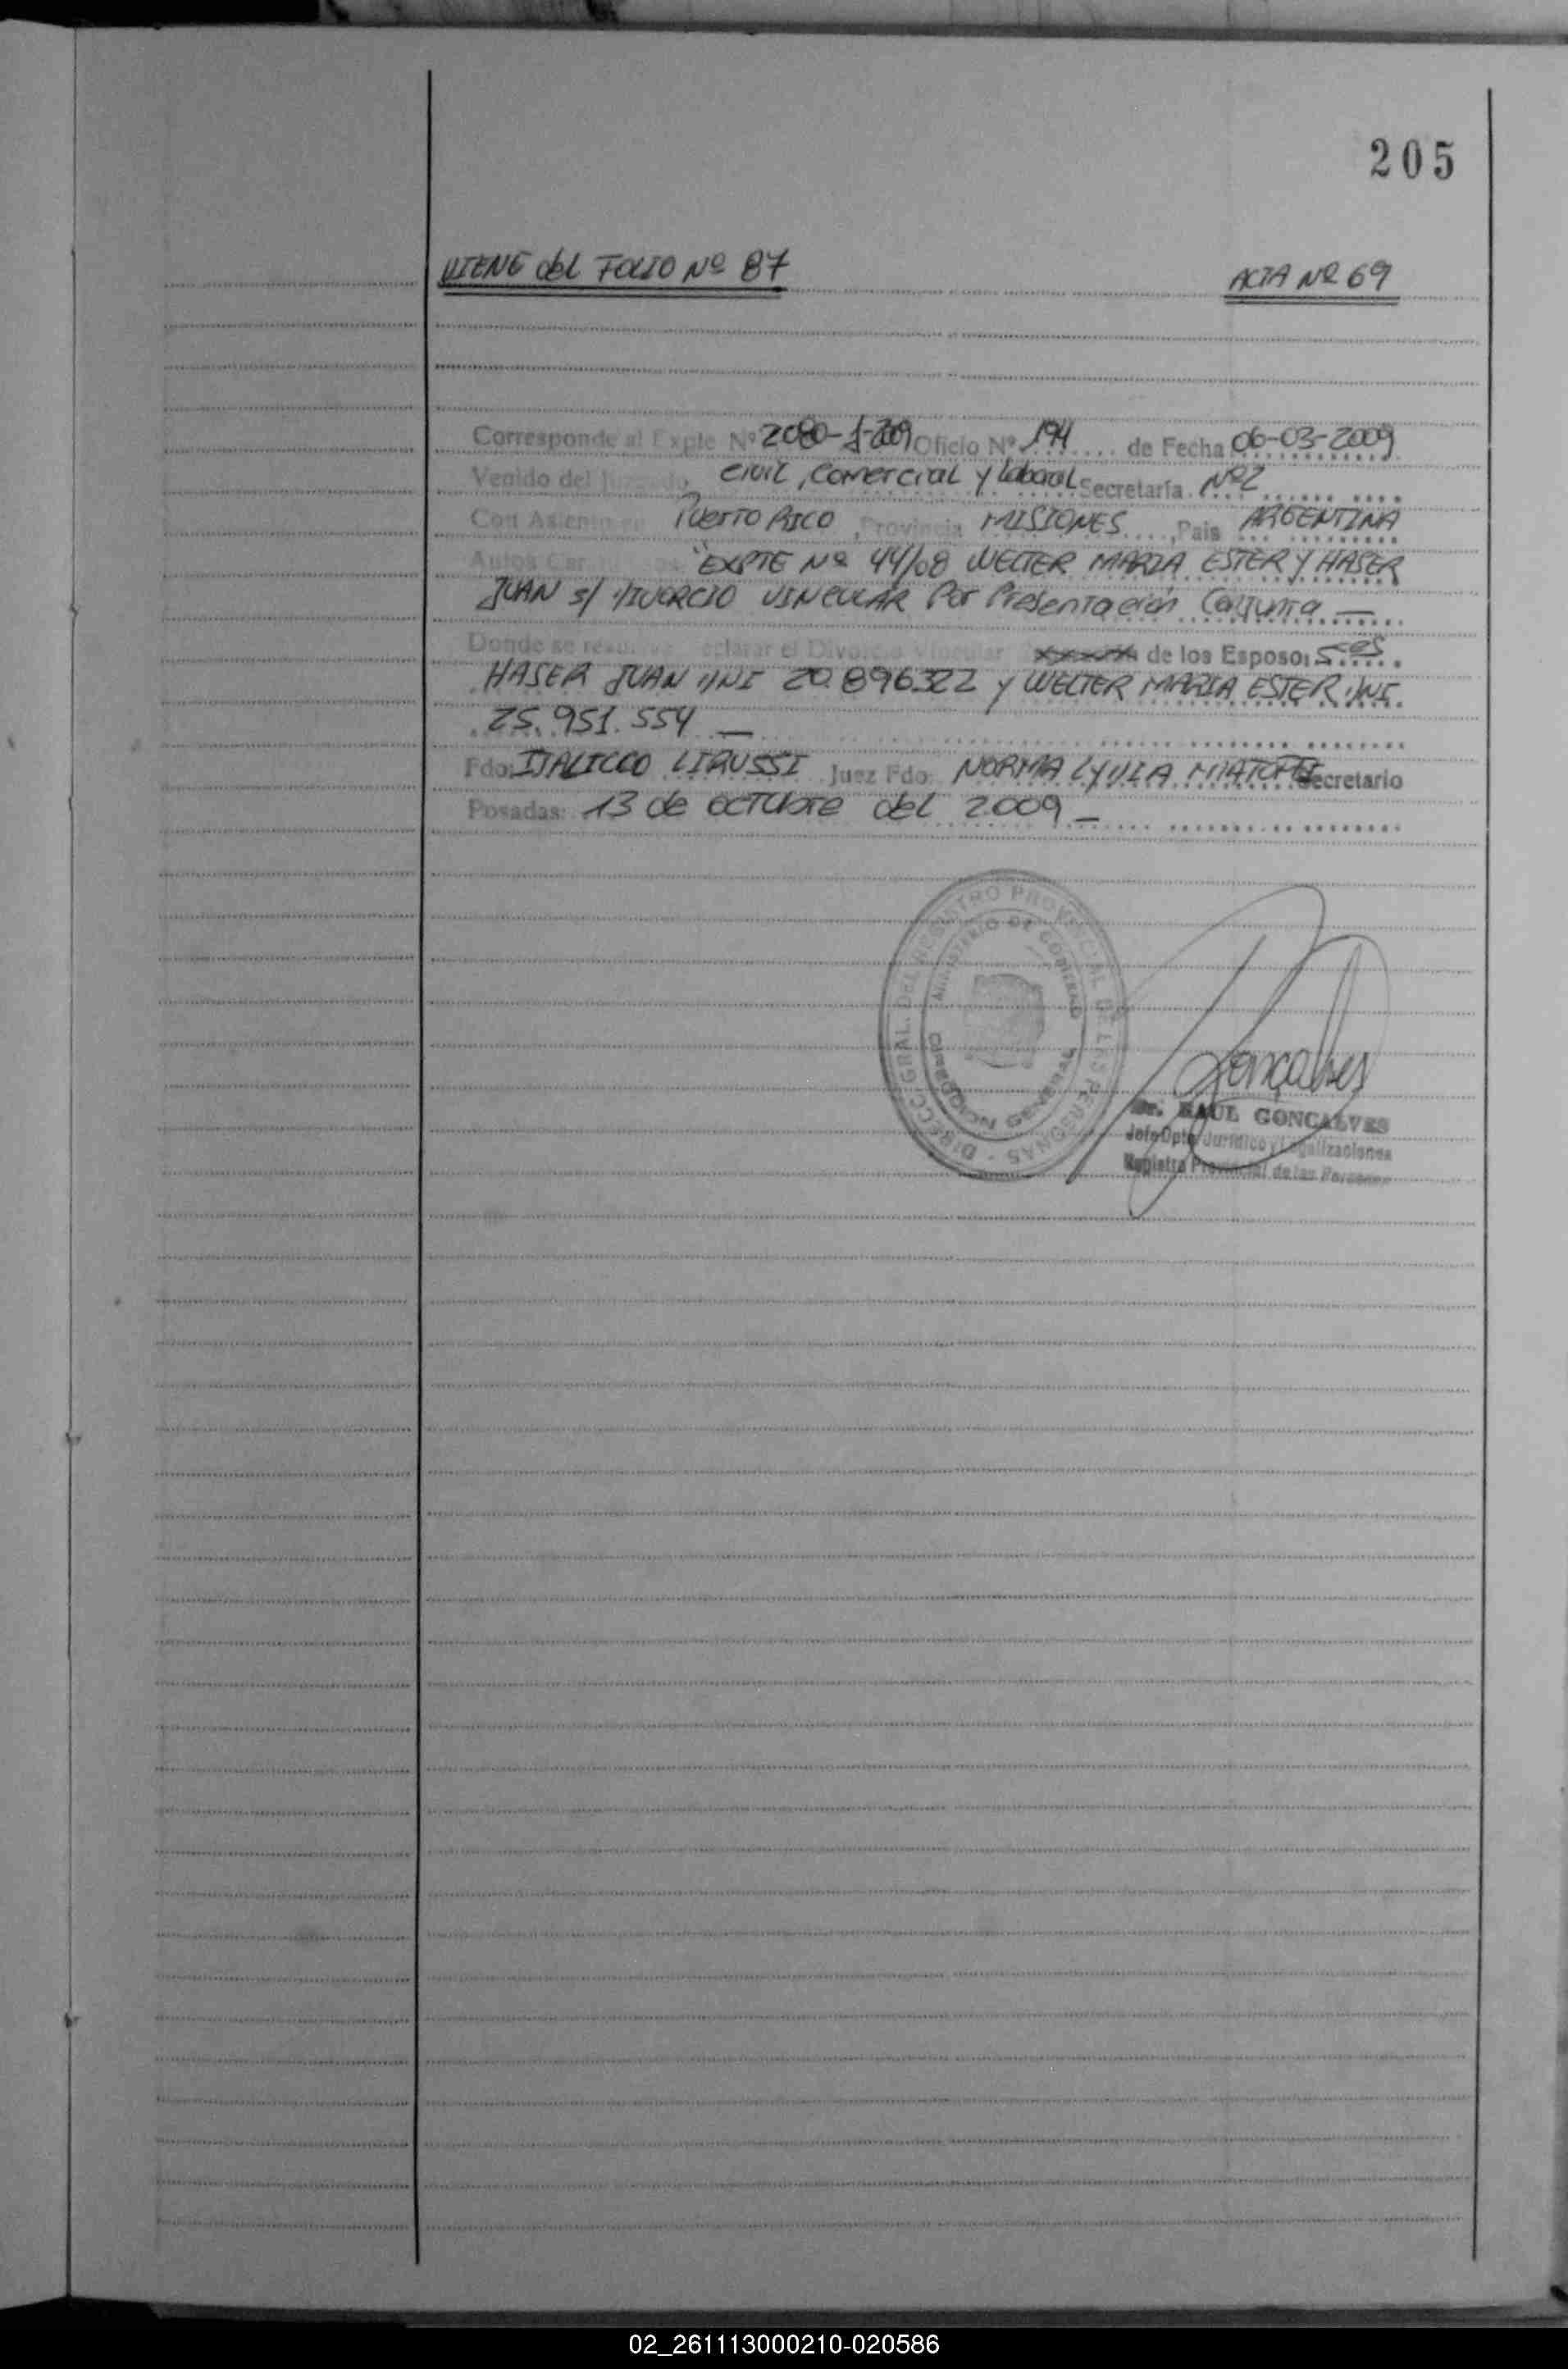 205
VIENE del FOLIO Nº 87 ACTA Nº 69
Corresponde al Expte Nº 2080-J-2009 Oficio Nº 194 de Fecha 06-03-2009
Venido del Juzgado Civil, Comercial y Laboral Secretaría Nº2
Con Asiento en Puerto Rico, Provincia MISIONES, Pais ARGENTINA
Autos Car "EXPTE Nº 44/08 WELTER MARIA ESTER Y HASER
JUAN s/ DIVORCIO VINCULAR Por Presentación Conjunta —
Donde se resuelve eclarar el Divorcio Vincular de los Esposo: Sres
HASER JUAN DNI 20.896322 y WELTER MARIA ESTER DNI
25.951.554 —
Fdo: LIRUSSI Juez Fdo: NORMA LYDIA Secretario
Posadas: 13 de octubre del 2009 —
DIRECC. GRAL. DEL REGISTRO PROVINCIAL DE LAS PERSONAS
MINISTERIO DE GOBIERNO
Gonçalves
Dr. RAUL GONCALVES
Jefe Dpto Jurídico y Legalizaciones
Registro Provincial de las Personas
02_261113000210-020586